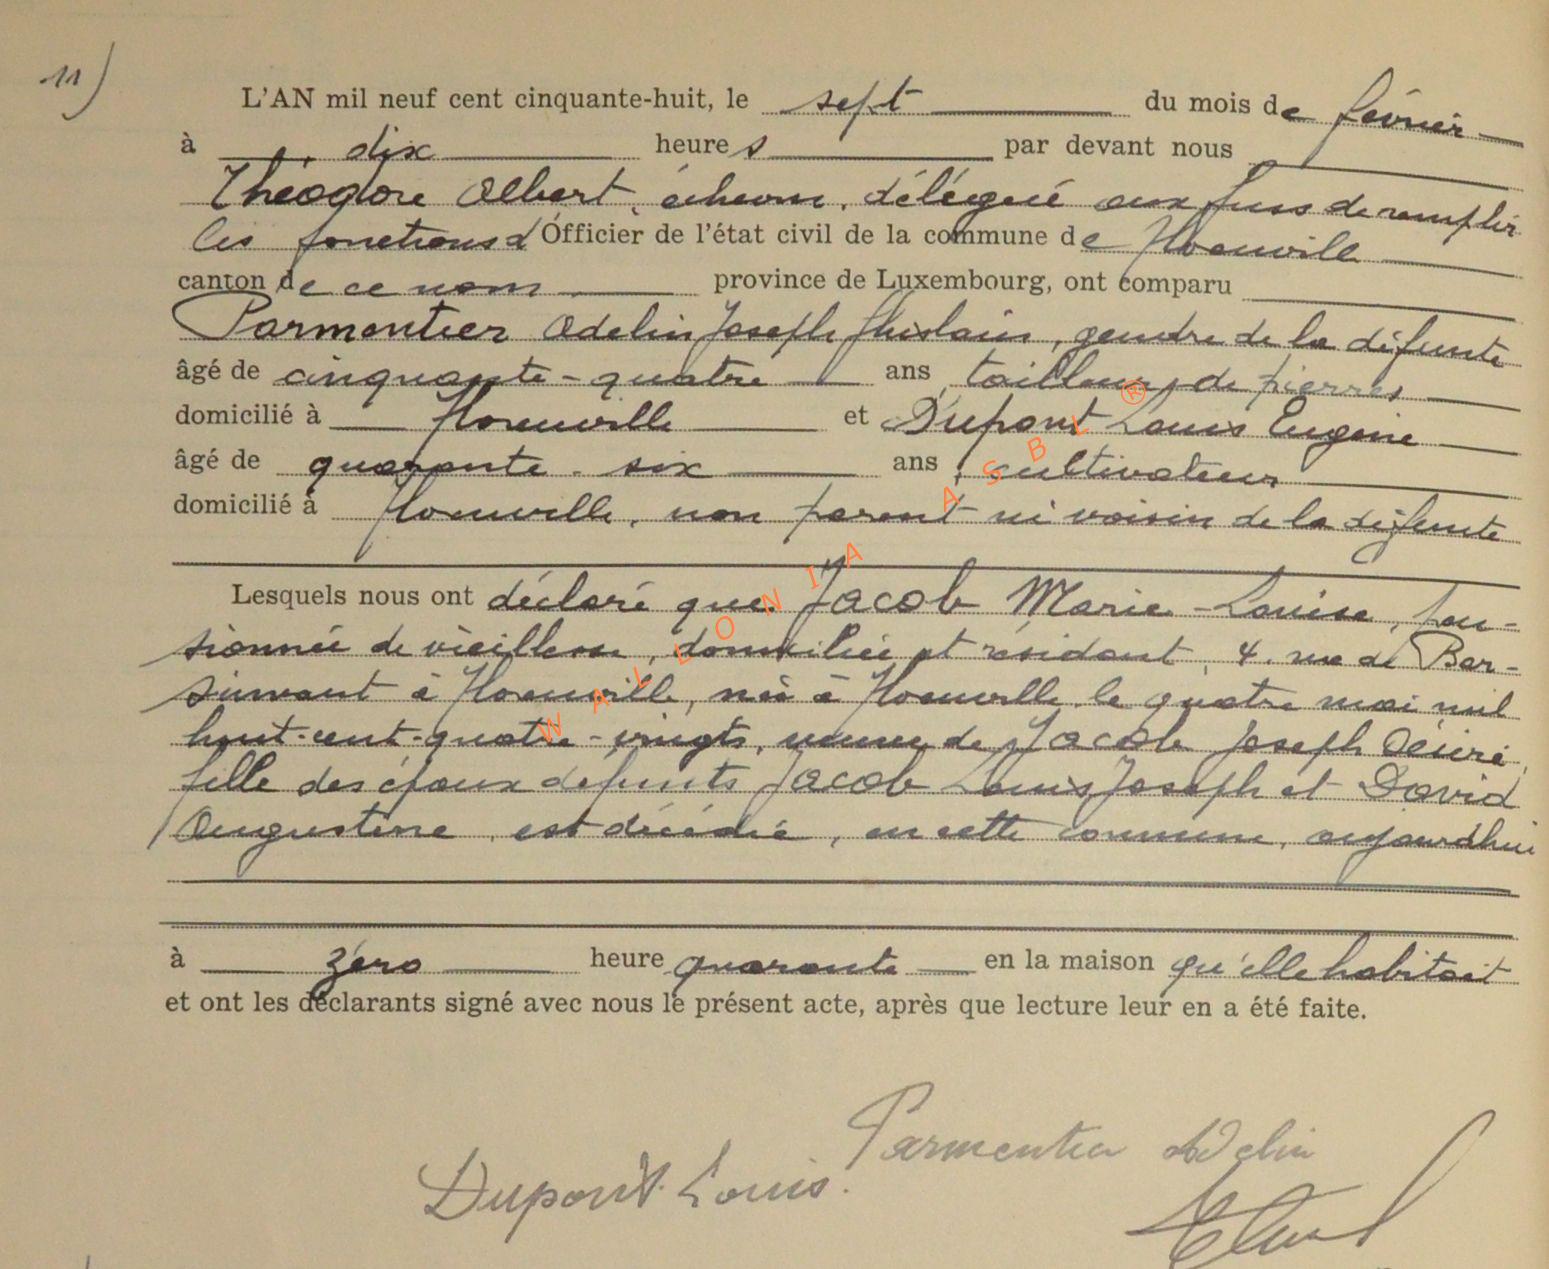 11)
L'AN mil neuf cent cinquante-huit, le sept du mois de février
à dix heures par devant nous
Théodore Albert, échevin, délégué aux fins de remplir
les fonctions d'Officier de l'état civil de la commune de
canton de ce nom province de Luxembourg, ont comparu
Parmentier Adelin Joseph Ghislain, gendre de la défunte
âgé de cinquante-quatre ans, tailleur de pierres
domicilié à et Dupont Louis Eugène
âgé de quarante-six ans, cultivateur
domicilié à , non parent ni voisin de la défunte
Lesquels nous ont déclaré que Jacob Marie-Louise, pen-
sionnée de vieillesse, domiciliée et résidant, 4, rue de
à , née à le quatre mai mil
huit-cent-quatre-vingts, veuve de Jacob Joseph Désiré,
fille des époux défunts Jacob Louis Joseph et David
Augustine, est décédée, en cette commune, aujourd'hui
à zéro heure quarante en la maison qu'elle habitait
et ont les déclarants signé avec nous le présent acte, après que lecture leur en a été faite.
Parmentier Adelin
Dupont Louis.
WALLONIA ASBL ®